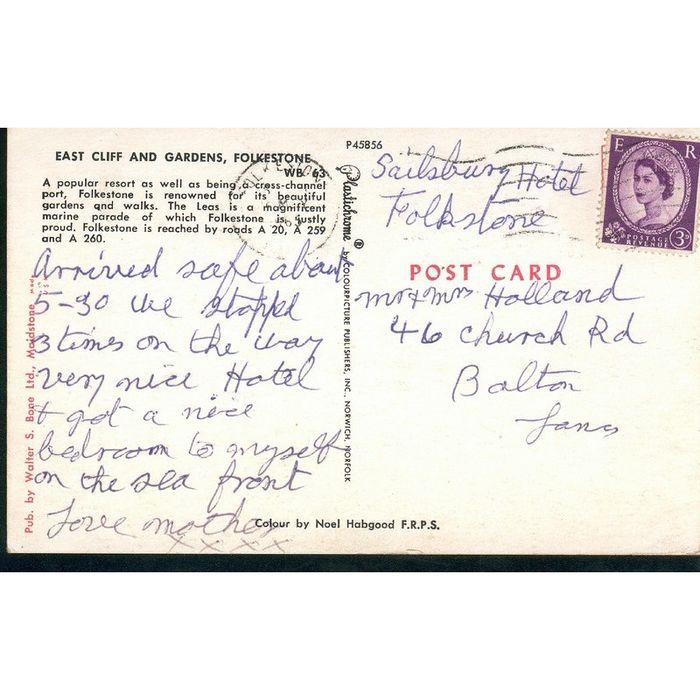 EAST CLIFF AND GARDENS, FOLKESTONE
WB 63
A popular resort as well as being a cross-channel
port, Folkestone is renowned for its beautiful
gardens qnd walks. The Leas is a magnificent
marine parade of which Folkestone is justly
proud. Folkestone is reached by roads A 20, A 259
and A 260.
Arrived safe about
5-30 we stopped
3 times on the way
very nice Hotel
+ got a nice
bedroom to myself
on the sea front
Love mother
XXXX
Pub. by Walter S. Bone Ltd., Maidstone
P45856
Plastichrome ® by COLOURPICTURE PUBLISHERS, INC., NORWICH, NORFOLK
Colour by Noel Habgood F.R.P.S.
FOLKESTONE
Sailsbury Hotel
Folkstone
POST CARD
Mr & Mrs Holland
46 Church Rd
Bolton
Lancs
E R
POSTAGE
REVENUE
3D